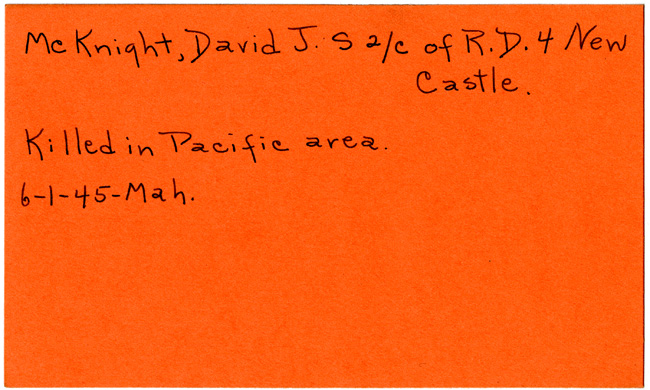 McKnight, David J. S 2/c of R.D. 4 New
Castle.
Killed in Pacific area.
6-1-45-Mah.